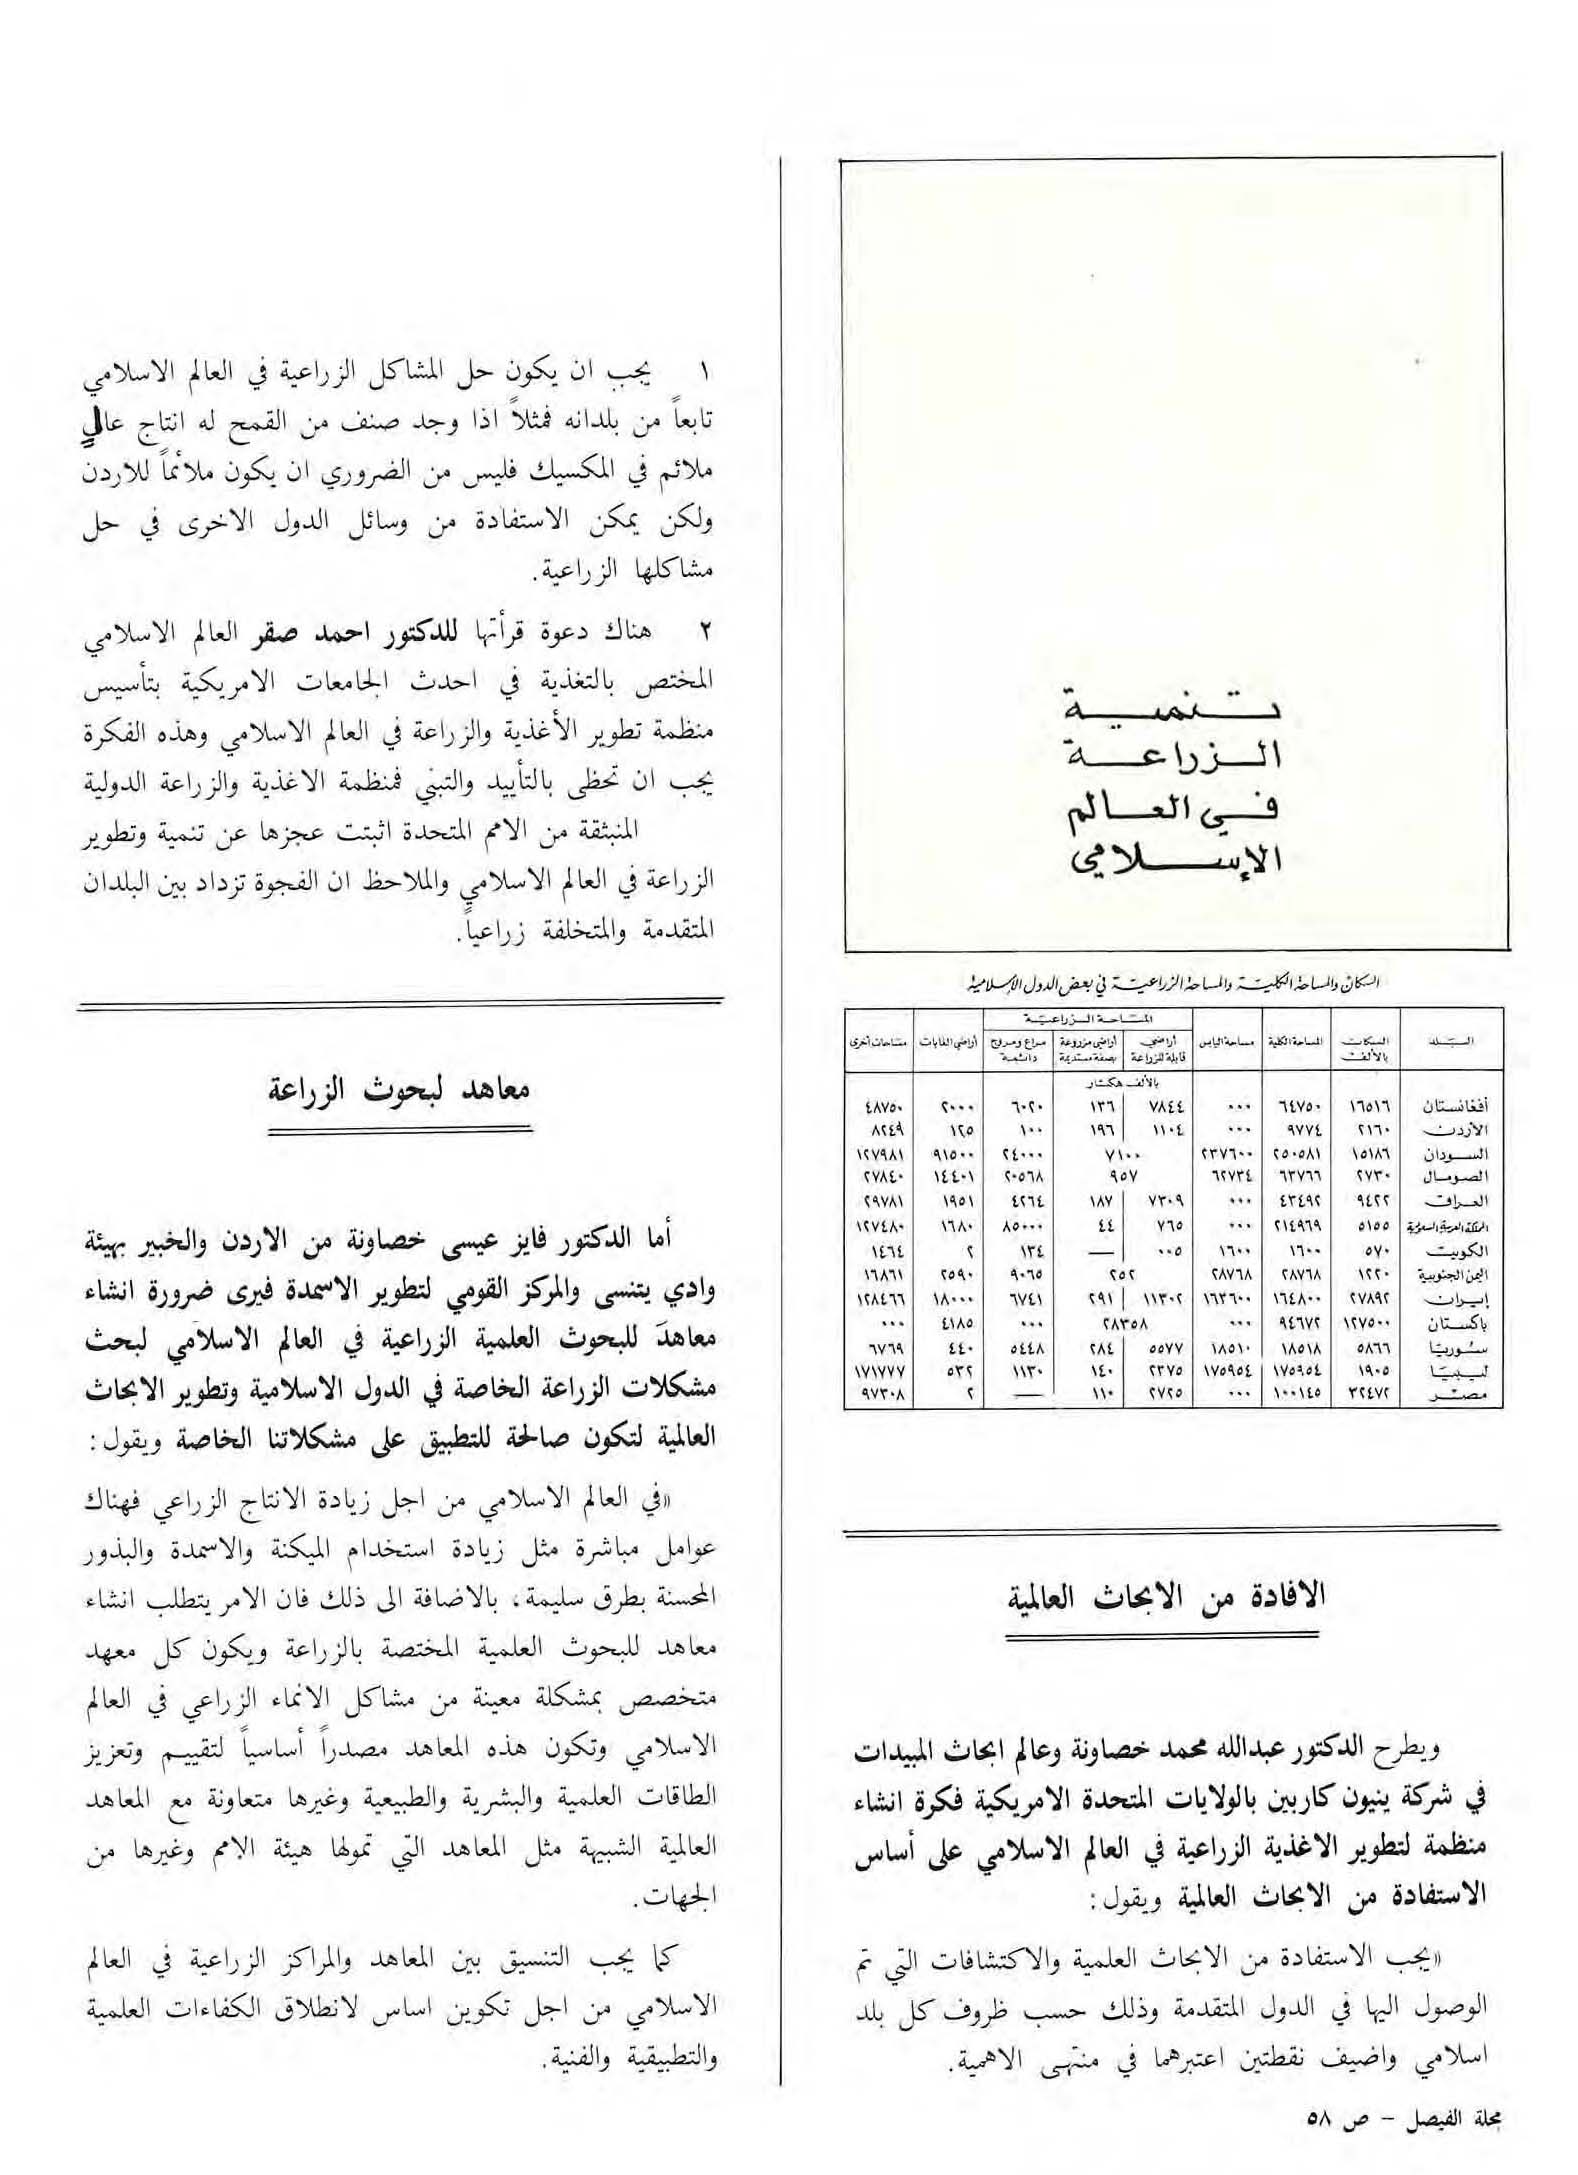 تنمية
الزراعة
في العالم
الإسلامي
السكان والمساحة الكلية والمساحة الزراعية في بعض الدول الإسلامية
المساحة الزراعية
البلد السكان بالألف المساحة الكلية مساحة اليابس أراضي قابلة للزراعة أراضي مزروعة بصفة مستديمة مراع ومروج دائمة أراضي الغابات مساحات أخرى
بالألف هكتار
أفغانستان ١٦٥١٦ ٦٤٧٥٠ ٠٠٠ ٧٨٤٤ ١٣٦ ٦٠٢٠ ٢٠٠٠ ٤٨٧٥٠
الأردن ٢١٦٠ ٩٧٧٤ ٠٠٠ ١١٠٤ ١٩٦ ١٠٠ ١٢٥ ٨٢٤٩
السودان ١٥١٨٦ ٢٥٠٥٨١ ٢٣٧٦٠٠ ٧١٠٠ ٢٤٠٠٠ ٩١٥٠٠ ١٢٧٩٨١
الصومال ٢٧٣٠ ٦٣٧٦٦ ٦٢٧٣٤ ٩٥٧ ٢٠٥٦٨ ١٤٤٠١ ٢٧٨٤٠
العراق ٩٤٢٢ ٤٣٤٩٢ ٠٠٠ ٧٣٠٩ ١٨٧ ٤٢٦٤ ١٩٥١ ٢٩٧٨١
المملكة العربية السعودية ٥١٥٥ ٢١٤٩٦٩ ٠٠٠ ٧٦٥ ٤٤ ٨٥٠٠٠ ١٦٨٠ ١٢٧٤٨٠
الكويت ٥٧٠ ١٦٠٠ ١٦٠٠ ٠٠٥ — ١٣٤ ٢ ١٤٦٤
اليمن الجنوبية ١٢٢٠ ٢٨٧٦٨ ٢٨٧٦٨ ٢٥٢ ٩٠٦٥ ٢٥٩٠ ١٦٨٦١
إيران ٢٧٨٩٢ ١٦٤٨٠٠ ١٦٣٦٠٠ ١١٣٠٢ ٢٩١ ٦٧٤١ ١٨٠٠٠ ١٢٨٤٦٦
باكستان ١٢٧٥٠٠ ٩٤٦٧٢ ٠٠٠ ٢٨٣٥٨ ٠٠٠ ٤١٨٥ ٠٠٠
سوريا ٥٨٦٦ ١٨٥١٨ ١٨٥١٠ ٥٥٧٧ ٢٨٤ ٥٤٤٨ ٤٤٠ ٦٧٦٩
ليبيا ١٩٠٥ ١٧٥٩٥٤ ١٧٥٩٥٤ ٢٣٧٥ ١٤٠ ١١٣٠ ٥٣٢ ١٧١٧٧٧
مصر ٣٢٤٧٢ ١٠٠١٤٥ ٠٠٠ ٢٧٢٥ ١١٠ — ٢ ٩٧٣٠٨
الافادة من الابحاث العالمية
ويطرح الدكتور عبدالله محمد خصاونة وعالم ابحاث المبيدات
في شركة ينيون كاربين بالولايات المتحدة الامريكية فكرة انشاء
منظمة لتطوير الاغذية الزراعية في العالم الاسلامي على أساس
الاستفادة من الابحاث العالمية ويقول:
«يجب الاستفادة من الابحاث العلمية والاكتشافات التي تم
الوصول اليها في الدول المتقدمة وذلك حسب ظروف كل بلد
اسلامي واضيف نقطتين اعتبرهما في منتهى الاهمية.
١ يجب ان يكون حل المشاكل الزراعية في العالم الاسلامي
تابعاً من بلدانه فمثلاً اذا وجد صنف من القمح له انتاج عالٍ
ملائم في المكسيك فليس من الضروري ان يكون ملائماً للاردن
ولكن يمكن الاستفادة من وسائل الدول الاخرى في حل
مشاكلها الزراعية.
٢ هناك دعوة قرأتها للدكتور احمد صقر العالم الاسلامي
المختص بالتغذية في احدث الجامعات الامريكية بتأسيس
منظمة تطوير الأغذية والزراعة في العالم الاسلامي وهذه الفكرة
يجب ان تحظى بالتأييد والتبني فمنظمة الاغذية والزراعة الدولية
المنبثقة من الامم المتحدة اثبتت عجزها عن تنمية وتطوير
الزراعة في العالم الاسلامي والملاحظ ان الفجوة تزداد بين البلدان
المتقدمة والمتخلفة زراعياً.
معاهد لبحوث الزراعة
أما الدكتور فايز عيسى خصاونة من الاردن والخبير بهيئة
وادي يتنسى والمركز القومي لتطوير الاسمدة فيرى ضرورة انشاء
معاهدَ للبحوث العلمية الزراعية في العالم الاسلامي لبحث
مشكلات الزراعة الخاصة في الدول الاسلامية وتطوير الابحاث
العالمية لتكون صالحة للتطبيق على مشكلاتنا الخاصة ويقول:
«في العالم الاسلامي من اجل زيادة الانتاج الزراعي فهناك
عوامل مباشرة مثل زيادة استخدام الميكنة والاسمدة والبذور
المحسنة بطرق سليمة، بالاضافة الى ذلك فان الامر يتطلب انشاء
معاهد للبحوث العلمية المختصة بالزراعة ويكون كل معهد
متخصص بمشكلة معينة من مشاكل الانماء الزراعي في العالم
الاسلامي وتكون هذه المعاهد مصدراً أساسياً لتقييم وتعزيز
الطاقات العلمية والبشرية والطبيعية وغيرها متعاونة مع المعاهد
العالمية الشبيهة مثل المعاهد التي تمولها هيئة الامم وغيرها من
الجهات.
كما يجب التنسيق بين المعاهد والمراكز الزراعية في العالم
الاسلامي من اجل تكوين اساس لانطلاق الكفاءات العلمية
والتطبيقية والفنية.
مجلة الفيصل – ص ٥٨